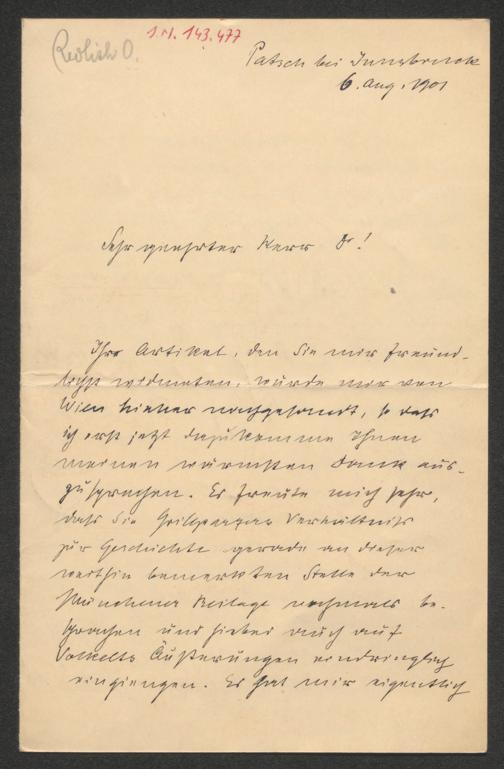 Redlich O.
I.N. 143.477
Patsch bei Innsbruck
6. Aug. 1901
Sehr geehrter Herr Dr!
Ihr Artikel, den Sie mir freund-
lichst widmeten, wurde mir von
Wien hieher nachgesandt, so dass
ich erst jetzt dazukomme Ihnen
meinen wärmsten Dank aus-
zusprechen. Es freute mich sehr,
dass Sie Grillparzers Verhältniss
zur Geschichte gerade an dieser
weithin bemerkten Stelle der
Münchener Beilage nochmals be-
sprachen und hiebei auch auf
Volkelts Äusserungen eindringlich
eingiengen. Es hat mir eigentlich